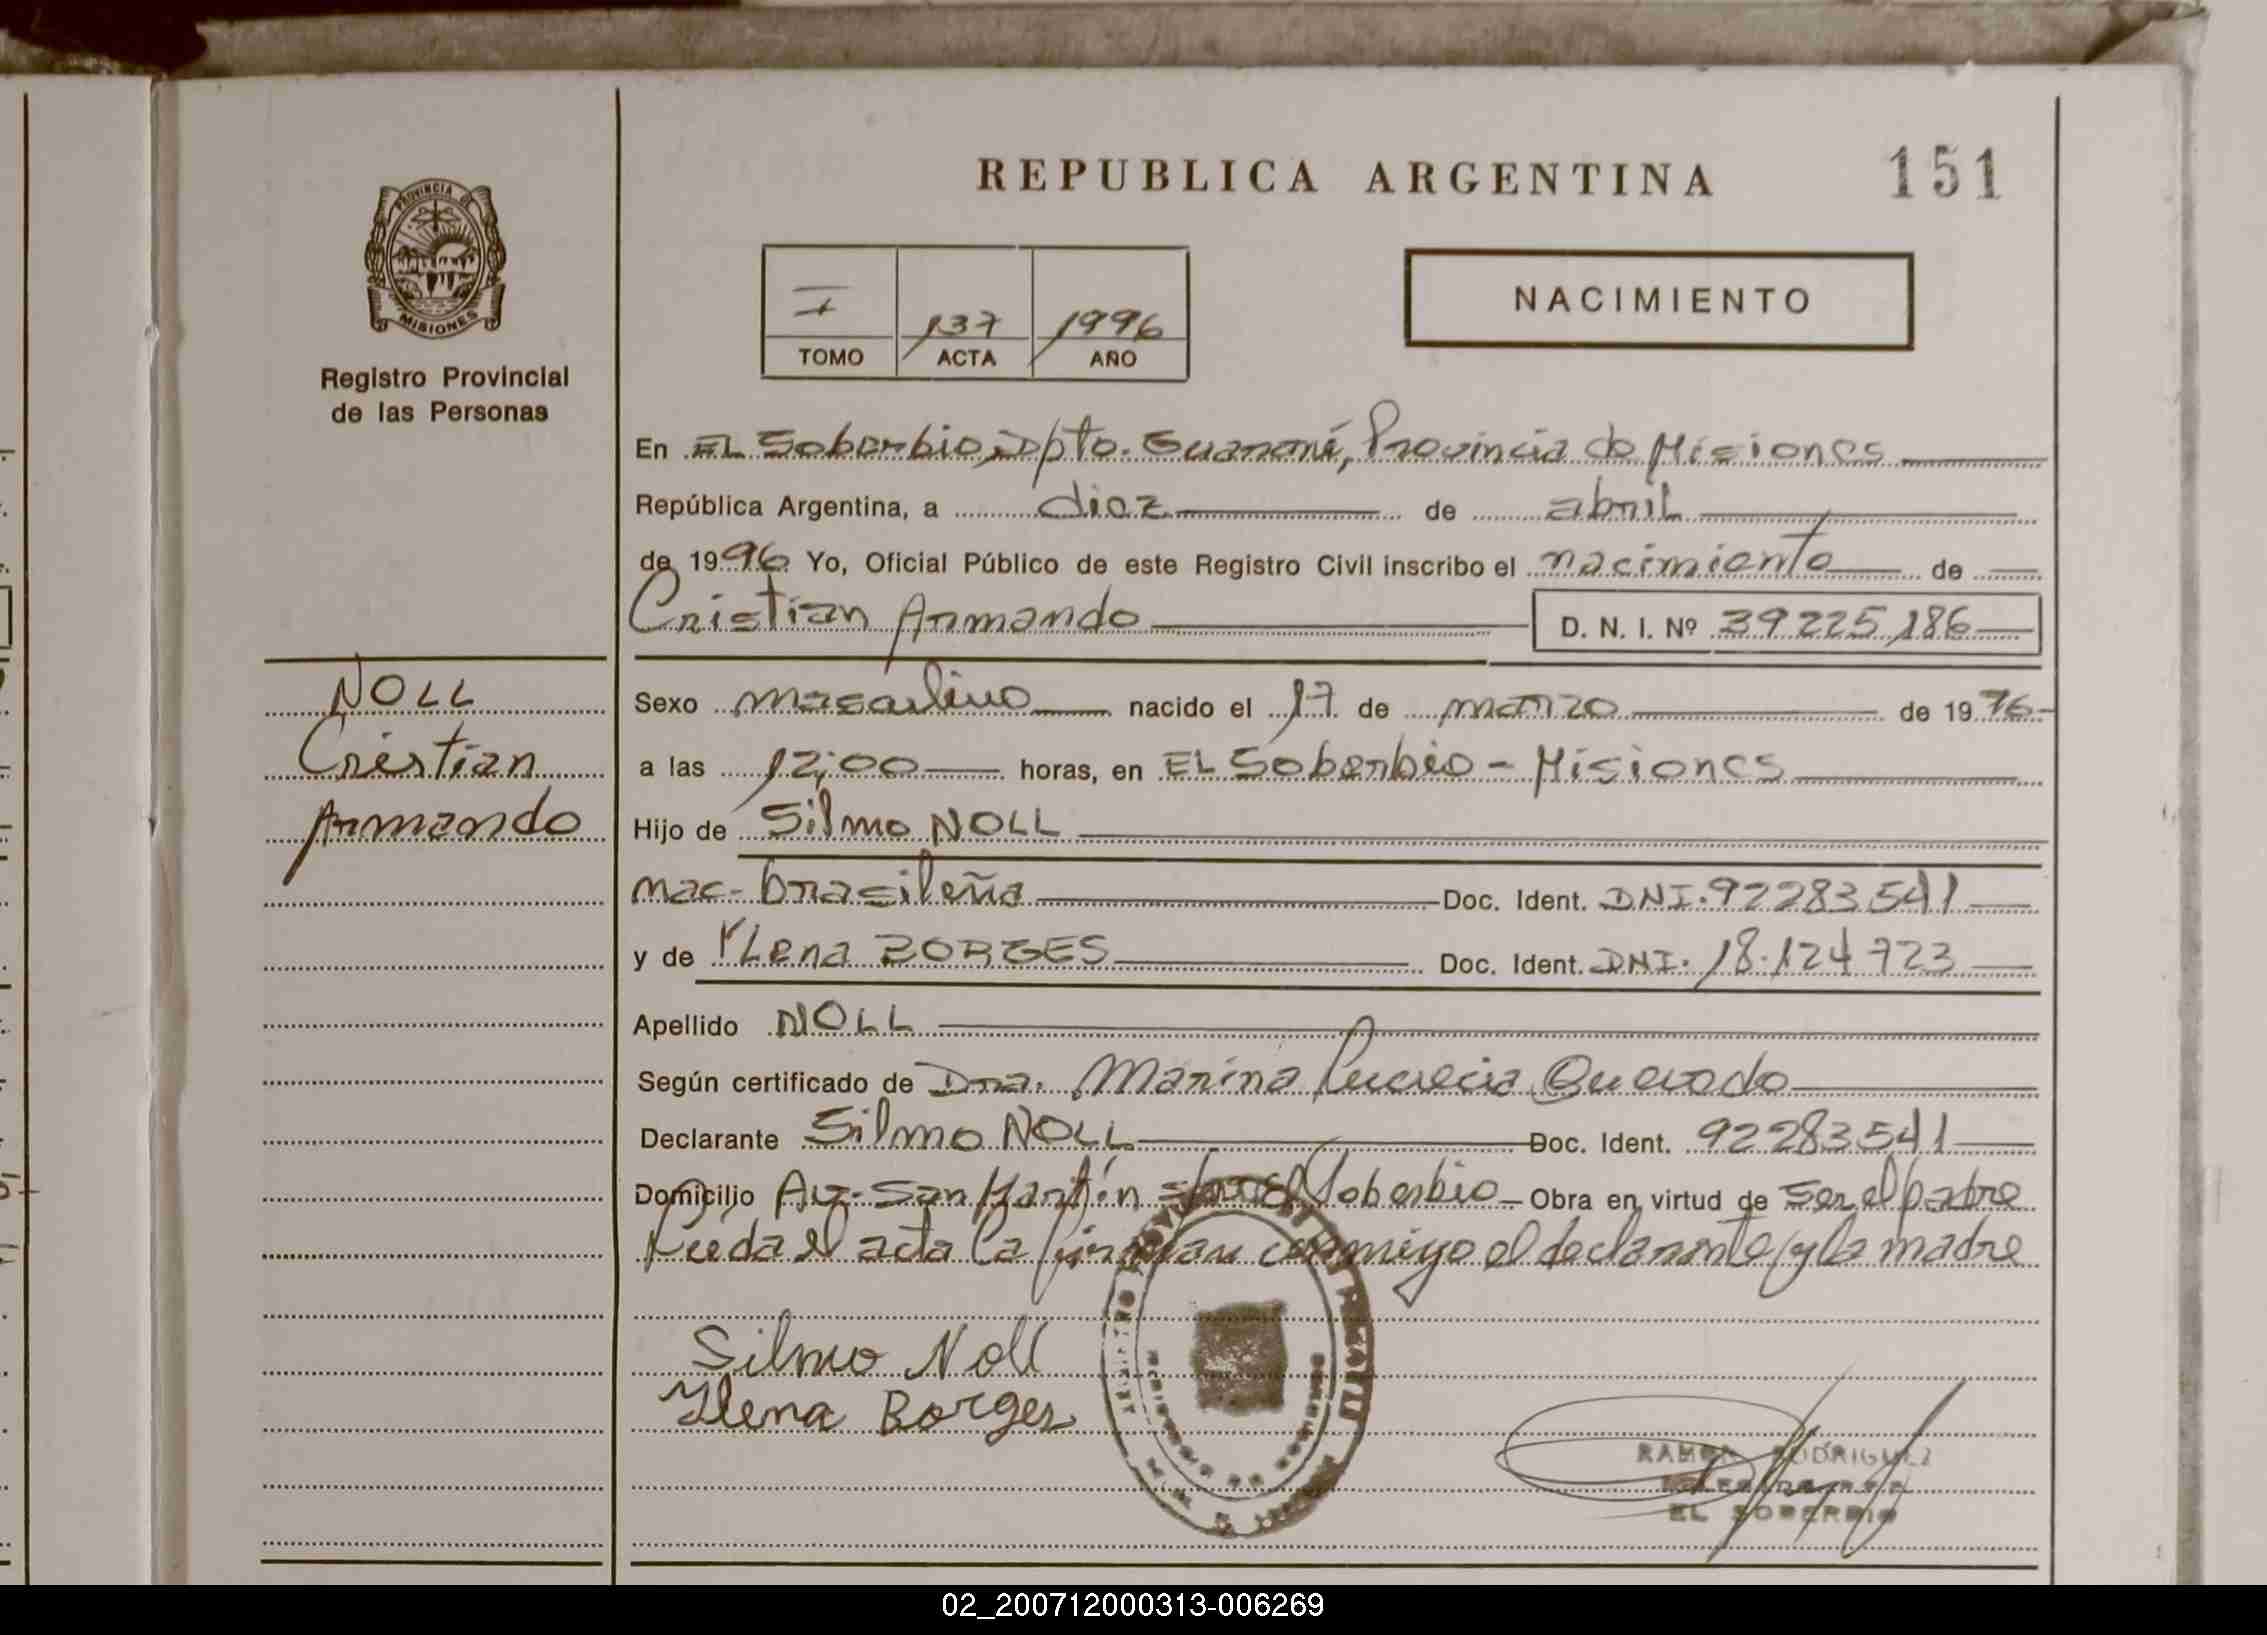 REPUBLICA ARGENTINA
151
PROVINCIA DE
MISIONES
Registro Provincial
de las Personas
I 137 1996
TOMO ACTA AÑO
NACIMIENTO
En EL Soberbio, Dpto. Guaraní, Provincia de Misiones
República Argentina, a diez de abril
de 1996 Yo, Oficial Público de este Registro Civil inscribo el nacimiento de
Cristian Armando D. N. I. Nº 39225186
NOLL
Cristian
Armando
Sexo masculino nacido el 17 de marzo de 1996
a las 12:00 horas, en EL Soberbio - Misiones
Hijo de Silmo NOLL
nac. brasileña Doc. Ident. DNI. 92283541
y de YLena BORGES Doc. Ident. DNI. 18.124723
Apellido NOLL
Según certificado de Dra. Marina Lucrecia Quevedo
Declarante Silmo NOLL Doc. Ident. 92283541
Domicilio Av. San Martín El Soberbio Obra en virtud de ser el padre
Leída el acta la firman conmigo el declarante y la madre
Silmo Noll
Ylena Borges
RAMON RODRIGUEZ
EL SOBERBIO
02_200712000313-006269